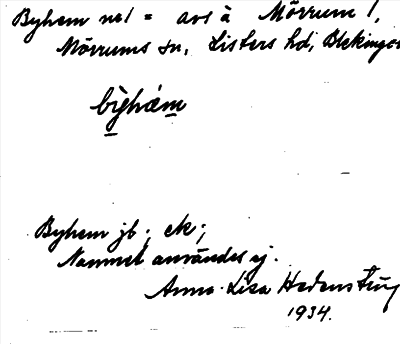 Byhem nr 1 = avs å Mörrum 1,
Mörrums sn, Listers hd, Blekinge
bỳhém
Byhem jb, ek;
Namnet användes ej.
Anna-Lisa
1934.